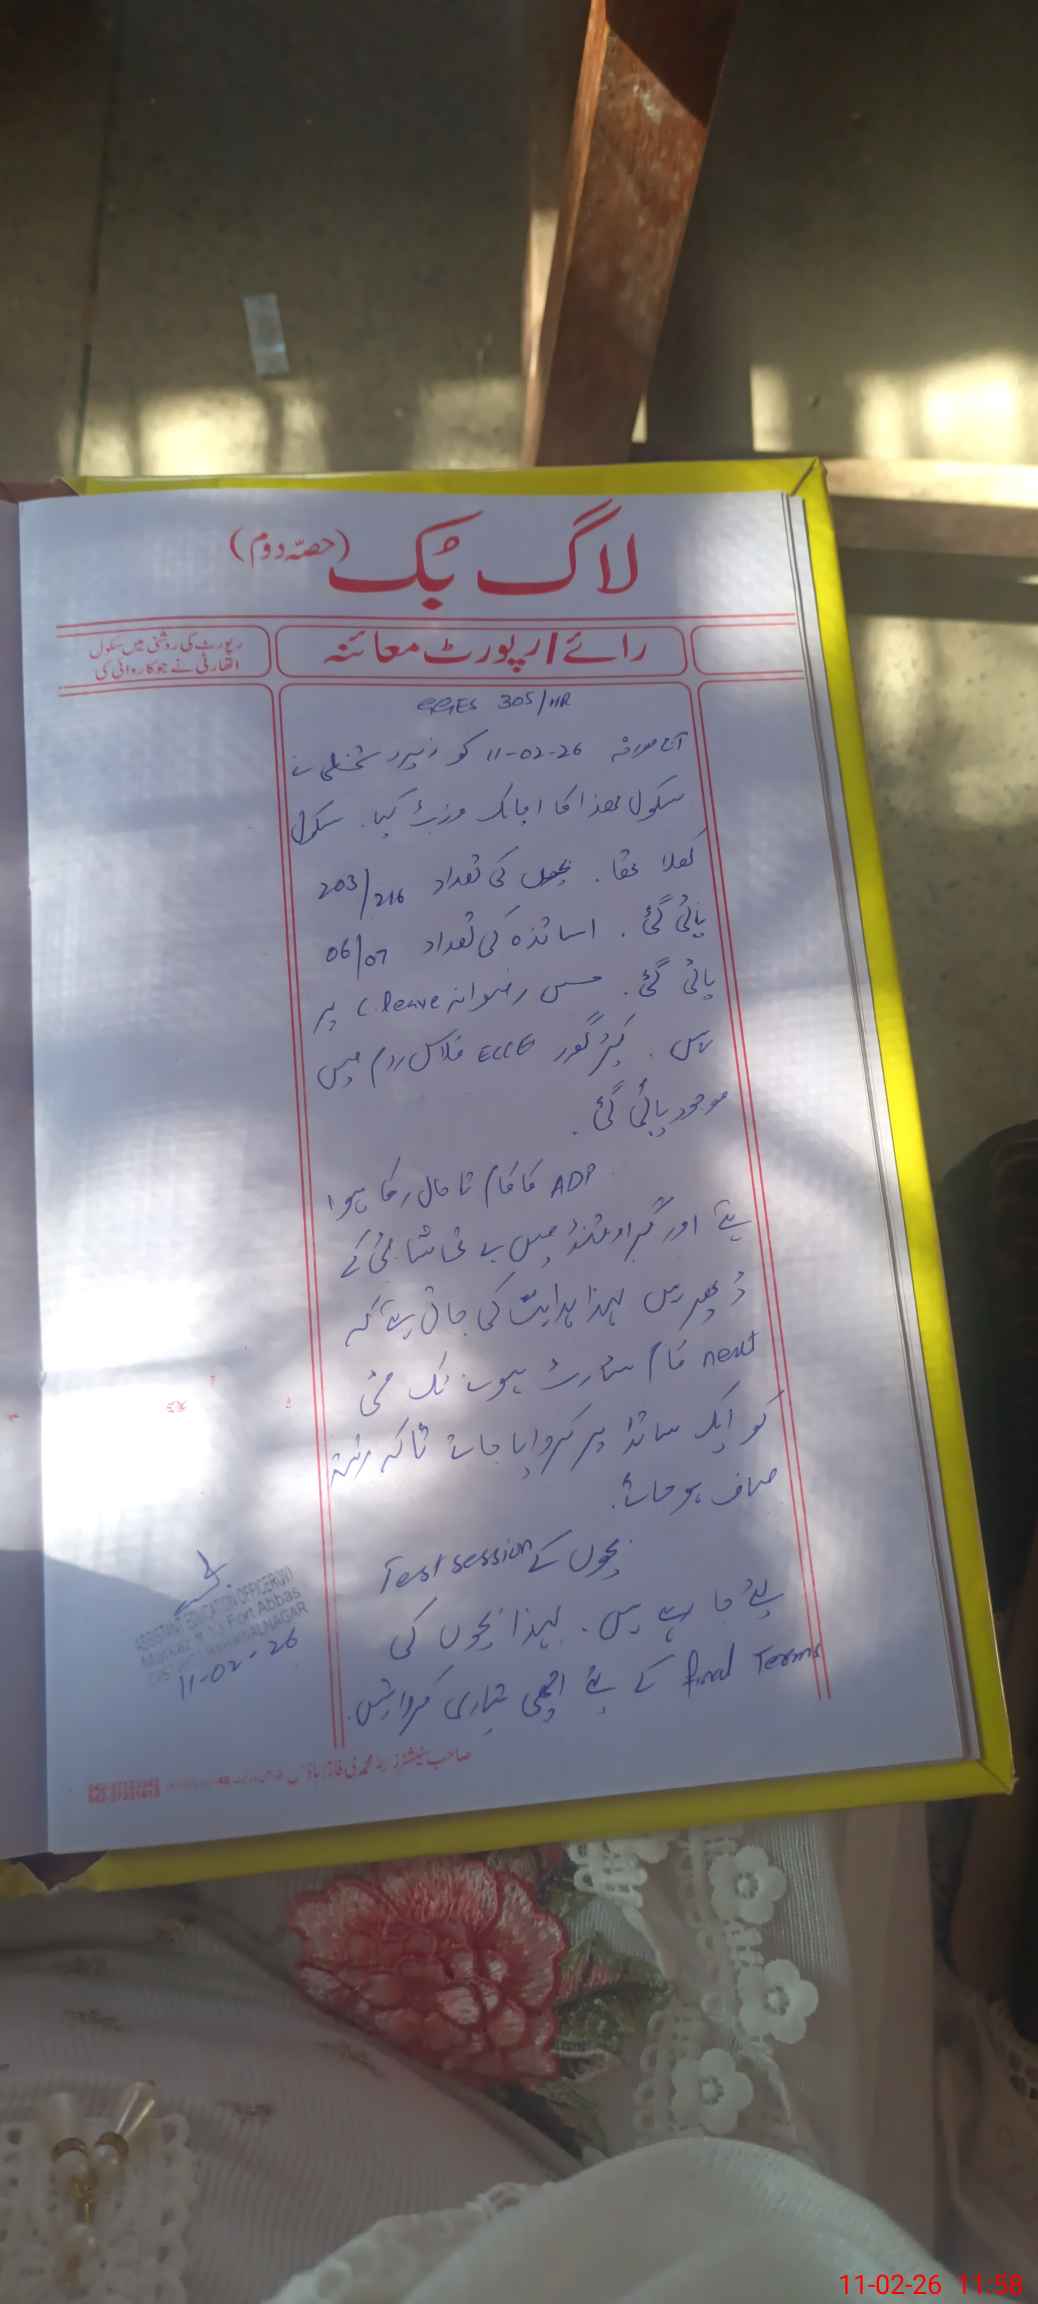 لاگ بک (حصہ دوم)
رائے/رپورٹ معائنہ
رپورٹ کی روشنی میں سکول
اتھارٹی نے جو کاروائی کی
GGES 305/HR
آج مورخہ 11-02-26 کو زیر دستخطی نے
سکول ھذا کا اچانک وزٹ کیا۔ سکول
کھلا تھا۔ بچوں کی تعداد 203/216
پائی گئی۔ اساتذہ کی تعداد 06/07
پائی گئی۔ مس رضوانہ C.leave پر
ہیں۔ کیئر گور ECCE کلاس روم میں
موجود پائی گئی۔
ADP کا کام تاحال رکا ہوا
ہے اور گراونڈ میں بے تحاشا مٹی کے
ڈھیر ہیں لہذا ہدایت کی جاتی ہے کہ
next کام سٹارٹ ہونے تک مٹی
کو ایک سائڈ پر کروایا جائے تاکہ رستہ
صاف ہو جائے۔
بچوں کے Test session
لئے جا رہے ہیں۔ لہذا بچوں کی
final Terms کے لئے اچھی تیاری کروائیں۔
ASSISTANT EDUCATION OFFICER(W)
Markaz Fort Abbas
BAHAWALNAGAR
11-02-26
11-02-26 11:58